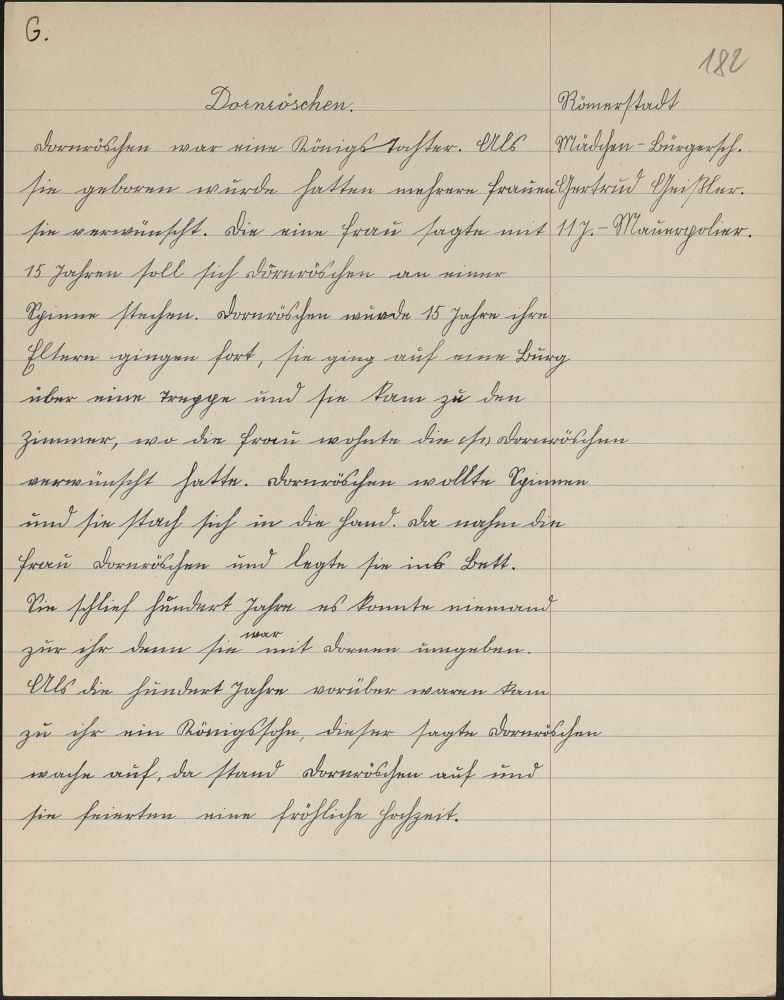 G.
182
Dornröschen.
Dornröschen war eine Königs Tochter. Als
sie geboren wurde hatten mehrere Frauen
sie verwünscht. Die eine Frau sagte mit
15 Jahren soll sich Dornröschen an einer
Spinne stechen. Dornröschen wurde 15 Jahre ihre
Eltern gingen fort, sie ging auf eine Burg
über eine Treppe und sie kam zu den
Zimmer, wo die Frau wohnte die Dornröschen
verwünscht hatte. Dornröschen wollte Spinnen
und sie stach sich in die Hand. Da nahm die
Frau Dornröschen und legte sie ins Bett.
Sie schlief hundert Jahre es konnte niemand
zur ihr denn sie war mit Dornen umgeben.
Als die hundert Jahre vorüber waren kam
zu ihr ein Königssohn, dieser sagte Dornröschen
wache auf, da stand Dornröschen auf und
sie feierten eine fröhliche Hochzeit.
Römerstadt
Mädchen-Bürgersch.
Gertrud Geißler.
11 J. - Mauerpolier.